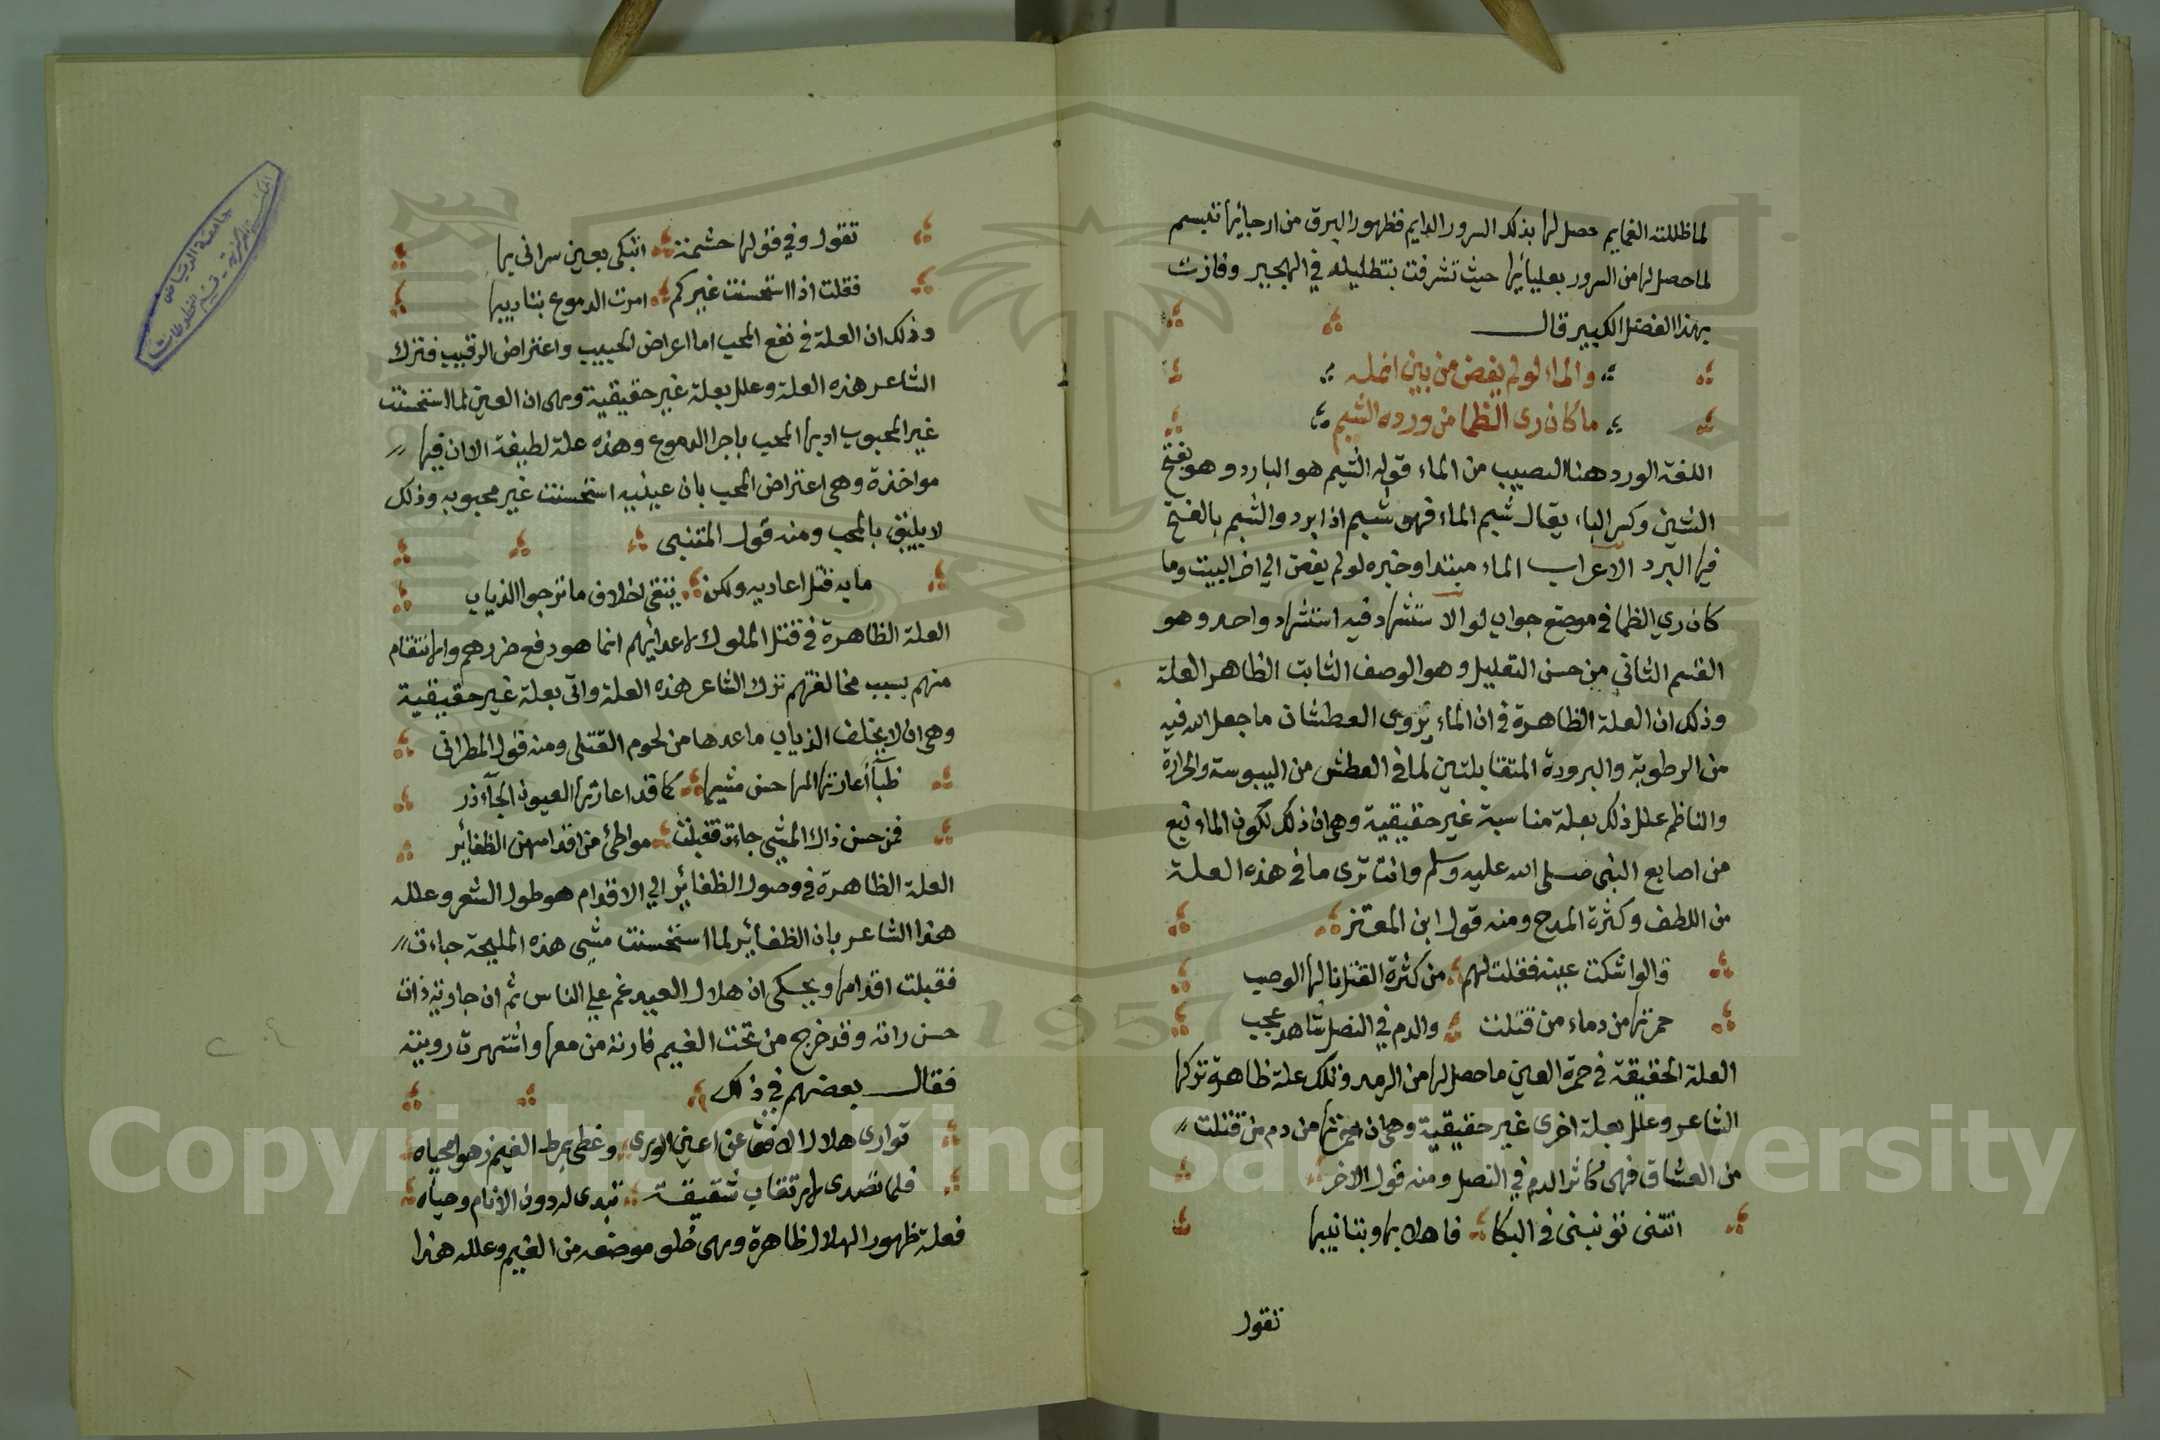 لما ظللته الغمايم حصل لها بذلك السرور الدايم فظهور البرق من ارجائها تبسم
لما حصل لها من السرور بعليائها حيث تشرفت بتظليله في الهجير وفازت
بهذا الفضل الكبير قال
والماء لو لم يفض من بين انمله
ما كان رى الظما من ورده الشبم
اللغة الورد هنا النصيب من الماء قوله الشبم هو البارد وهو بفتح
الشين وكسر الباء يقال شبم الماء فهو شبم اذا برد والشبم بالفتح
فيها البرد الاعراب الماء مبتدا وخبره لو لم يفض الي اخر البيت وما
كان ري الظما في موضع جواب لو الاستشهاد فيه استشهاد واحد وهو
القسم الثاني من حسن التعليل وهو الوصف الثابت الظاهر العلة
وذلك ان العلة الظاهرة في ان الماء يروى العطشان ما جعل الله فيه
من الرطوبة والبرودة المتقابلتين لما في العطش من اليبوسة والحرارة
والناظم علل ذلك بعلة مناسبة غير حقيقية وهي ان ذلك لكون الماء نبع
من اصابع النبى صلى الله عليه وسلم وانت ترى ما في هذه العلة
من اللطف وكثرة المدح ومنه قول ابن المعتز
قالوا اشتكت عينه فقلت لهم من كثرة القتل نالها الوصب
حمرتها من دماء من قتلت والدم في النصل شاهد عجب
العلة الحقيقة في حمرة العين ما حصل لها من الرمد وتلك علة ظاهرة تركها
الشاعر وعلل بعلة اخرى غير حقيقية وهي ان حمرتها من دم من قتلت
من العشاق فهى كاثر الدم في النصل ومنه قول الاخر
اتتنى تؤنبنى في البكا فاهلا بها وبتانيبها
تقول
تقول وفي قولها حشمة اتبكى بعين سرانى بها
فقلت اذا استحسنت غيركم امرت الدموع بتاديبها
وذلك ان العلة في نفع المحب اما اعراض الحبيب واعتراض الرقيب فترك
الشاعر هذه العلة وعلل بعلة غير حقيقية وهى ان العين لما استحسنت
غير المحبوب ادبها المحب باجرا الدموع وهذه علة لطيفة الا ان فيها
مواخذة وهى اعتراض المحب بان عينيه استحسنت غير محبوبه وذلك
لا يليق بالمحب ومنه قول المتنبى
ما به قتل اعاديه ولكن يتقى اخلاف ما ترجوا الذياب
العلة الظاهرة في قتل الملوك لاعدائهم انما هو دفع ضررهم والانتقام
منهم بسبب مخالفتهم ترك الشاعر هذه العلة واتى بعلة غير حقيقية
وهي ان لا يخلف الذياب ما عدها من لحوم القتلى ومنه قول المطرانى
ظبآ أعارتها المها حسن مشيها كما قد اعارتها العيون الجآذر
فمن حسن ذاك المشي جاءت فقبلت مواطئ من اقدامهن الظفائر
العلة الظاهرة في وصول الظفائر الي الاقدام هو طول الشعر وعلله
هذا الشاعر بان الظفائر لما استحسنت مشى هذه المليحة جاءت
فقبلت اقدامها ويحكى ان هلال العيد غم علي الناس ثم ان جارية ذات
حسن راته وقد خرج من تحت الغيم فارته من معها واشتهرت رويته
فقال بعضهم في ذلك
توارى هلال الافق عن اعين الورى وغطى بمرط الغيم زهوا محياه
فلما تصدى لارتقاب شقيقه تبدى له دون الانام وحياه
فعلة ظهور الهلال ظاهرة وهى خلو موضعه من الغيم وعلله هذا
جامعة الرياض
المكتبة المركزية - قسم المخطوطات
1957
Copyright © King Saud University